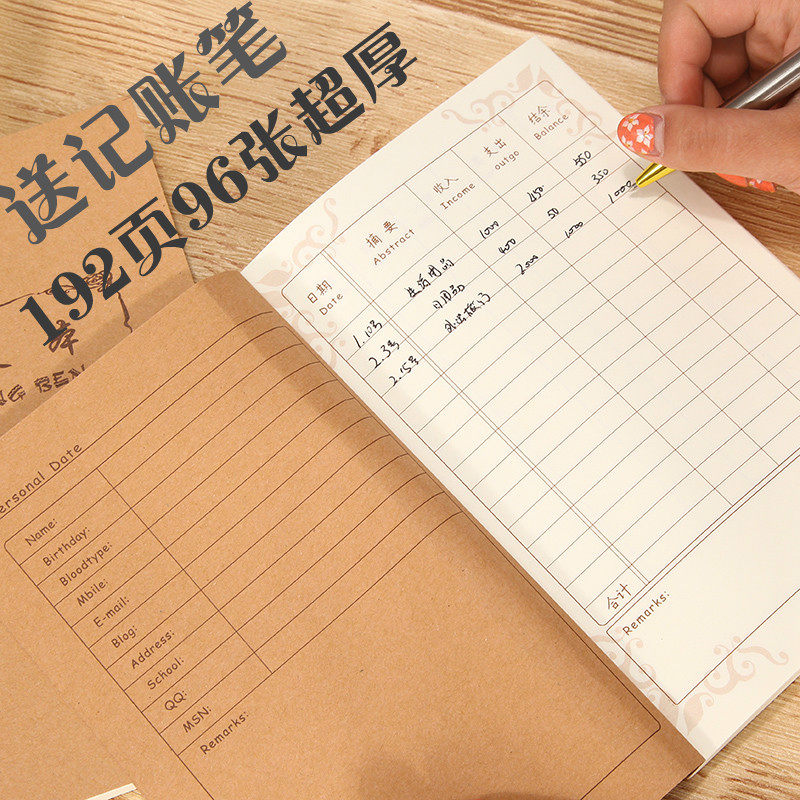 送记账笔
192页96张超厚
日期 摘要 收入 支出 结余
Date Abstract Income outgo Balance
1.10号 生活用品 1000 450 550
2.3号 日用品 400 50 350
2.15号 2000 1000 1000
合计
Remarks:
Personal Date
Name:
Birthday:
Bloodtype:
Mbile:
E-mail:
Blog:
Address:
School:
QQ:
MSN:
Remarks:
本
BEN